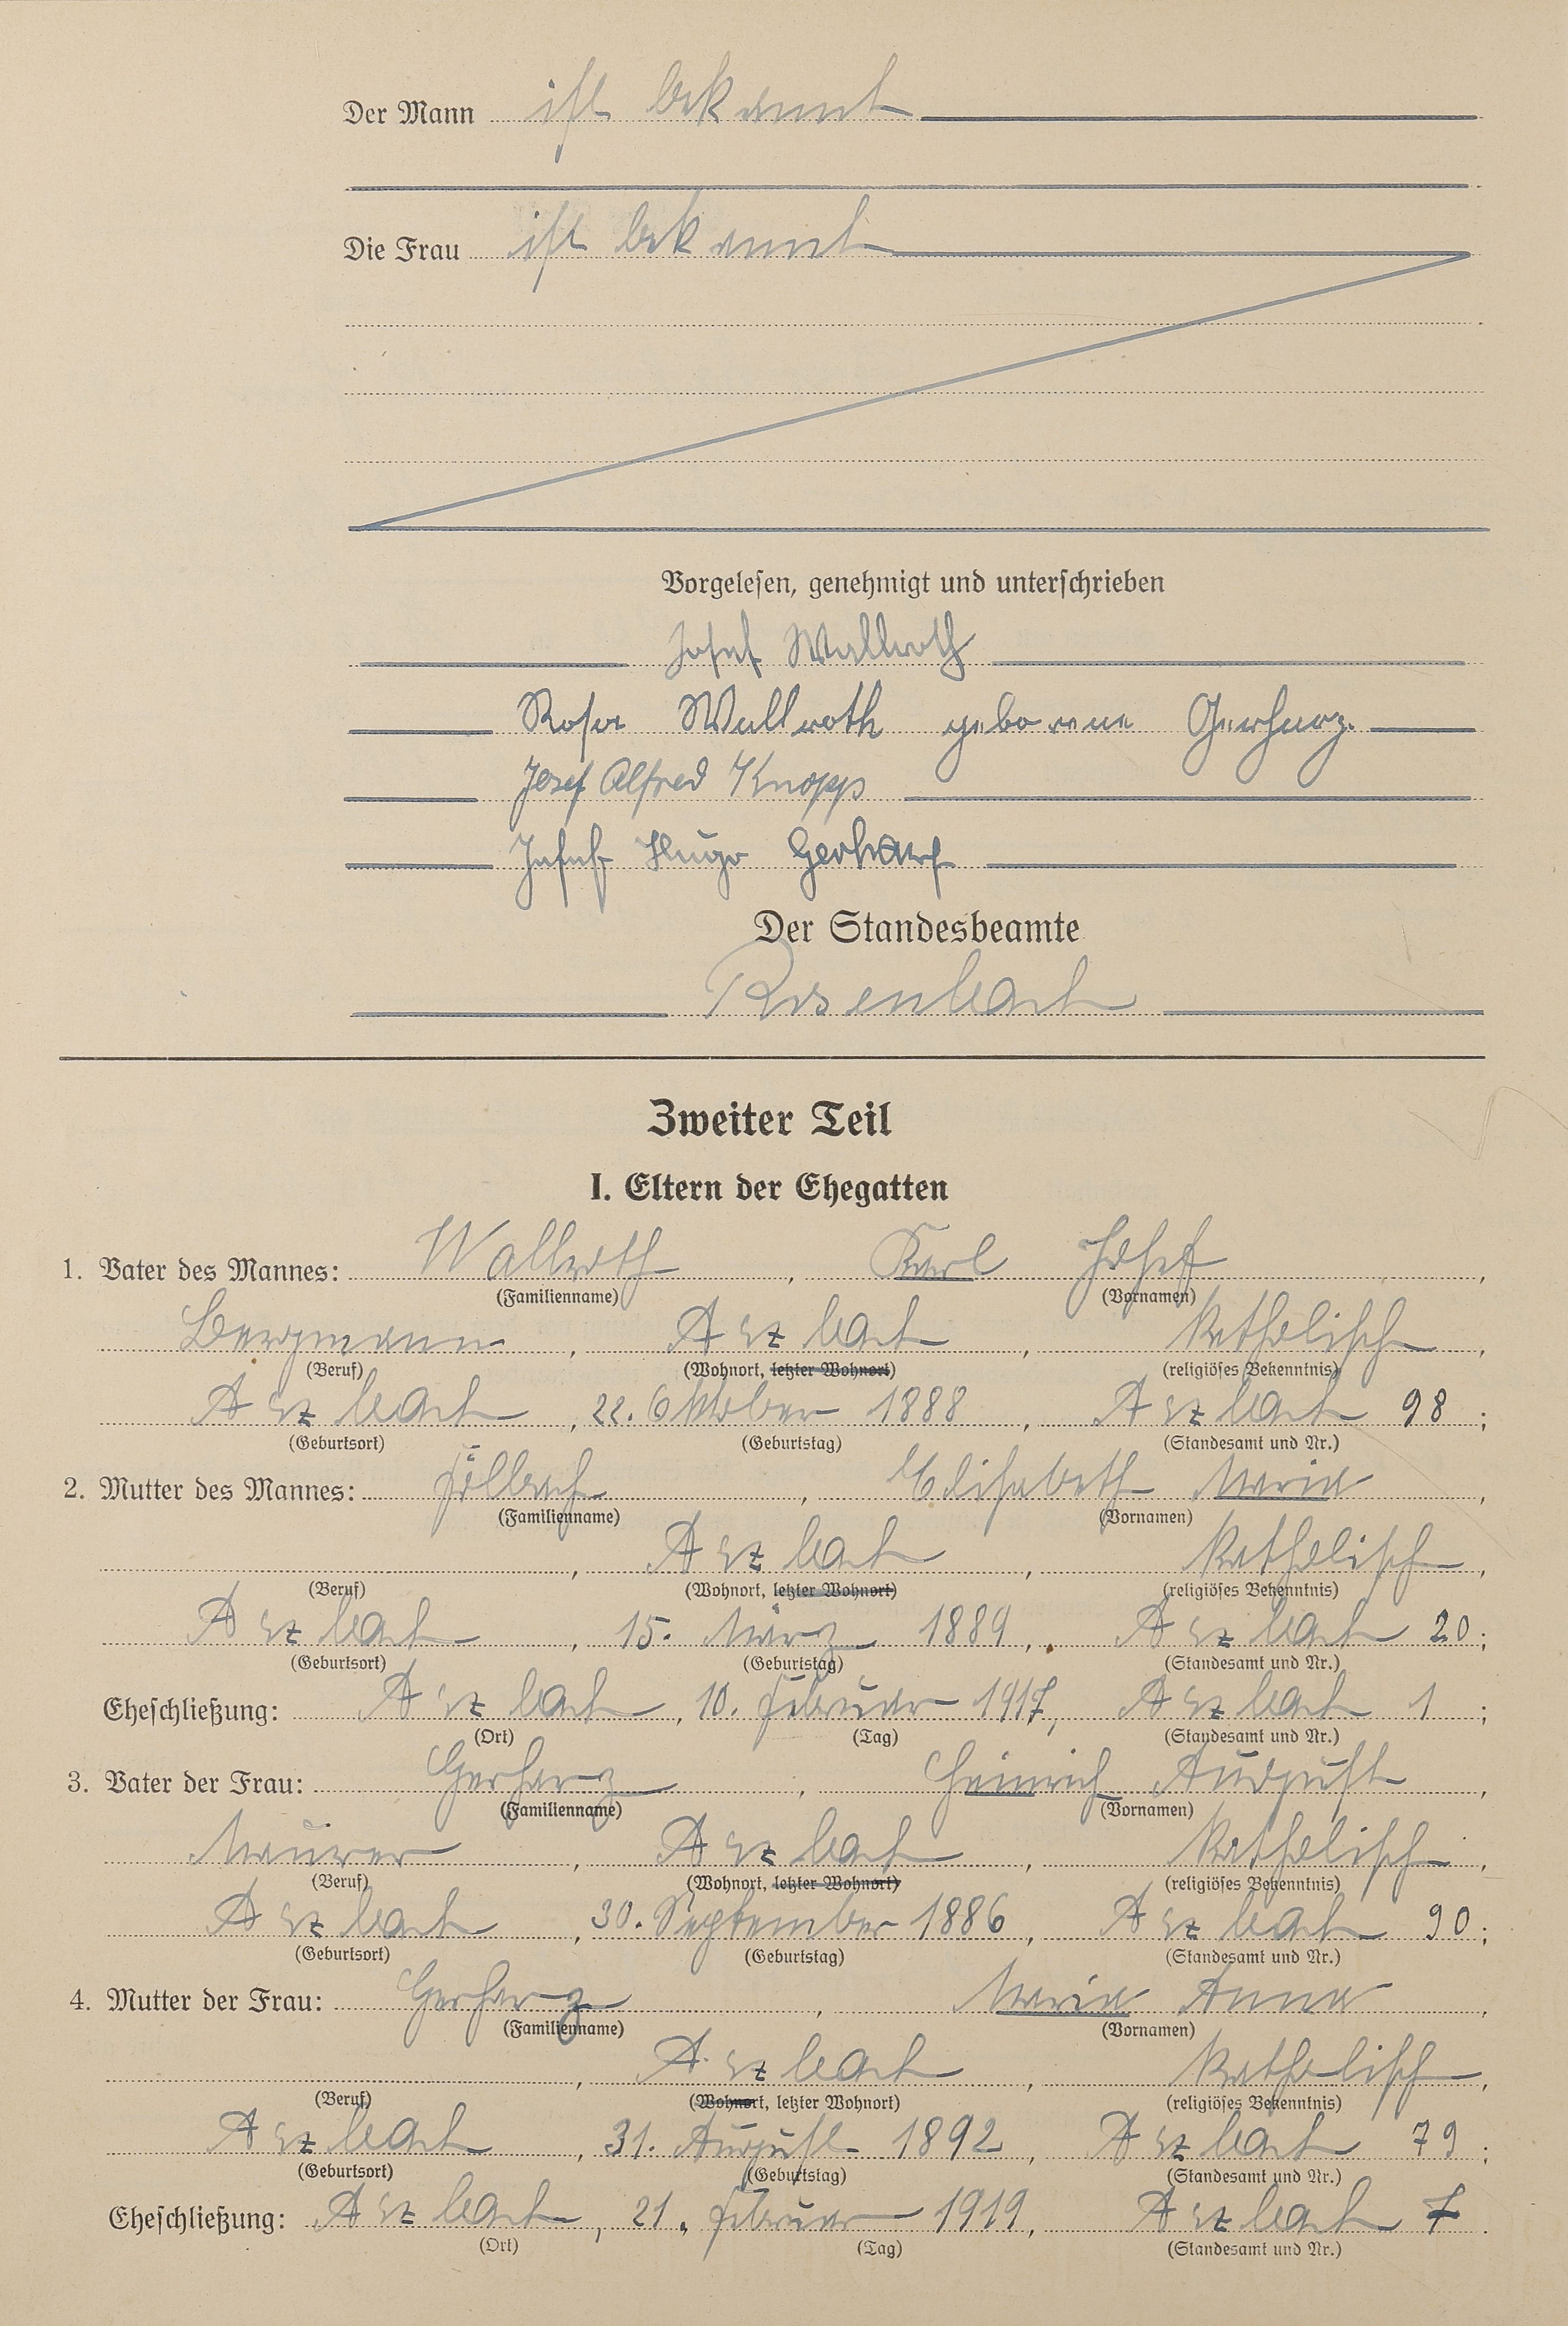 Der Mann ist bekannt
Die Frau ist bekannt
Vorgelesen, genehmigt und unterschrieben
Josef Wallroth
Rosa Wallroth geborene Gerharz.
Josef Alfred Knopp
Josef Hugo Gerharz
Der Standesbeamte
Rosenbach
Zweiter Teil
I. Eltern der Ehegatten
1. Vater des Mannes: Wallroth, Karl Josef,
(Familienname) (Vornamen)
Bergmann, Arzbach, katholisch,
(Beruf) (Wohnort, letzter Wohnort) (religiöses Bekenntnis)
Arzbach, 22. Oktober 1888, Arzbach 98;
(Geburtsort) (Geburtstag) (Standesamt und Nr.)
2. Mutter des Mannes: , Elisabeth Maria,
(Familienname) (Vornamen)
, Arzbach, katholisch,
(Beruf) (Wohnort, letzter Wohnort) (religiöses Bekenntnis)
Arzbach, 15. März 1889, Arzbach 20;
(Geburtsort) (Geburtstag) (Standesamt und Nr.)
Eheschließung: Arzbach, 10. Februar 1917, Arzbach 1;
(Ort) (Tag) (Standesamt und Nr.)
3. Vater der Frau: Gerharz, Heinrich August,
(Familienname) (Vornamen)
Maurer, Arzbach, katholisch,
(Beruf) (Wohnort, letzter Wohnort) (religiöses Bekenntnis)
Arzbach, 30. September 1886, Arzbach 90;
(Geburtsort) (Geburtstag) (Standesamt und Nr.)
4. Mutter der Frau: Gerharz, Maria Anna,
(Familienname) (Vornamen)
, Arzbach, katholisch,
(Beruf) (Wohnort, letzter Wohnort) (religiöses Bekenntnis)
Arzbach, 31. August 1892, Arzbach 79;
(Geburtsort) (Geburtstag) (Standesamt und Nr.)
Eheschließung: Arzbach, 21. Februar 1919, Arzbach 7.
(Ort) (Tag) (Standesamt und Nr.)